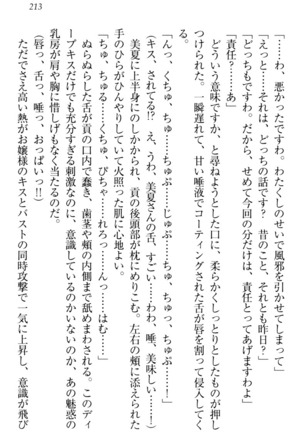 213
「……わ、悪かったですわ。わたくしのせいで風邪を引かせてしまって」
「えっと……それは、どっちの話です？　昔のこと、それとも昨日？」
「どっちもですわ。だから、せめて今回の分だけは、責任とってあげますわよ」
「責任？……あ」
　どういう意味ですか、と尋ねるより早く、柔らかくしっとりとしたものが押し
つけられた。一瞬遅れて、甘い唾液でコーティングされた舌が唇を割って侵入してく
る。
「んっ、くちゅ、ちゅ……ちゅぷ……じゅる、ちゅ……ちゅぷ……」
（キス、されてる!?　え、うわ、美夏さんの舌、すごい……わ、唾、美味しい……）
　美夏に上半身にのしかかられ、貢の後頭部が枕にめり込む。左右の頬に添えられた
手のひらがひんやりしていて火照った肌に心地よい。
「ちゅ、ちゅる……くちゅ、ぴちゃ……れろっ……んっ……はむ……」
　ぬらぬらしした舌が貢の口内で蠢き、歯茎や頬の内側まで舐めまわされる。このディ
ープキスだけでも充分すぎる刺激なのに、意識しているのかいないのか、あの魅惑の
乳房が肩や胸に惜しげもなく当たる。
（唇っ、舌っ、唾っ、おっぱいっ!!）
　ただでさえ高い熱がお嬢様のキスとバストの同時攻撃で一気に上昇し、意識が飛び